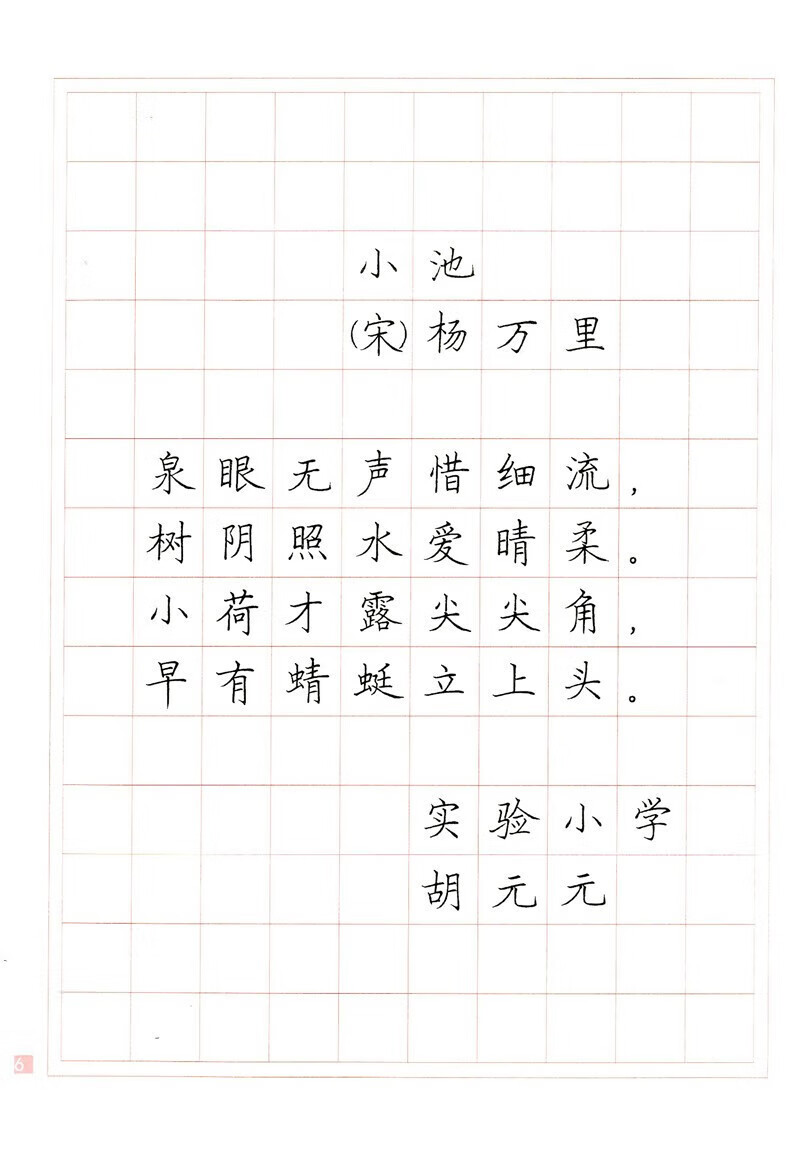 小池
(宋)杨万里
泉眼无声惜细流，
树阴照水爱晴柔。
小荷才露尖尖角，
早有蜻蜓立上头。
实验小学
胡元元
6